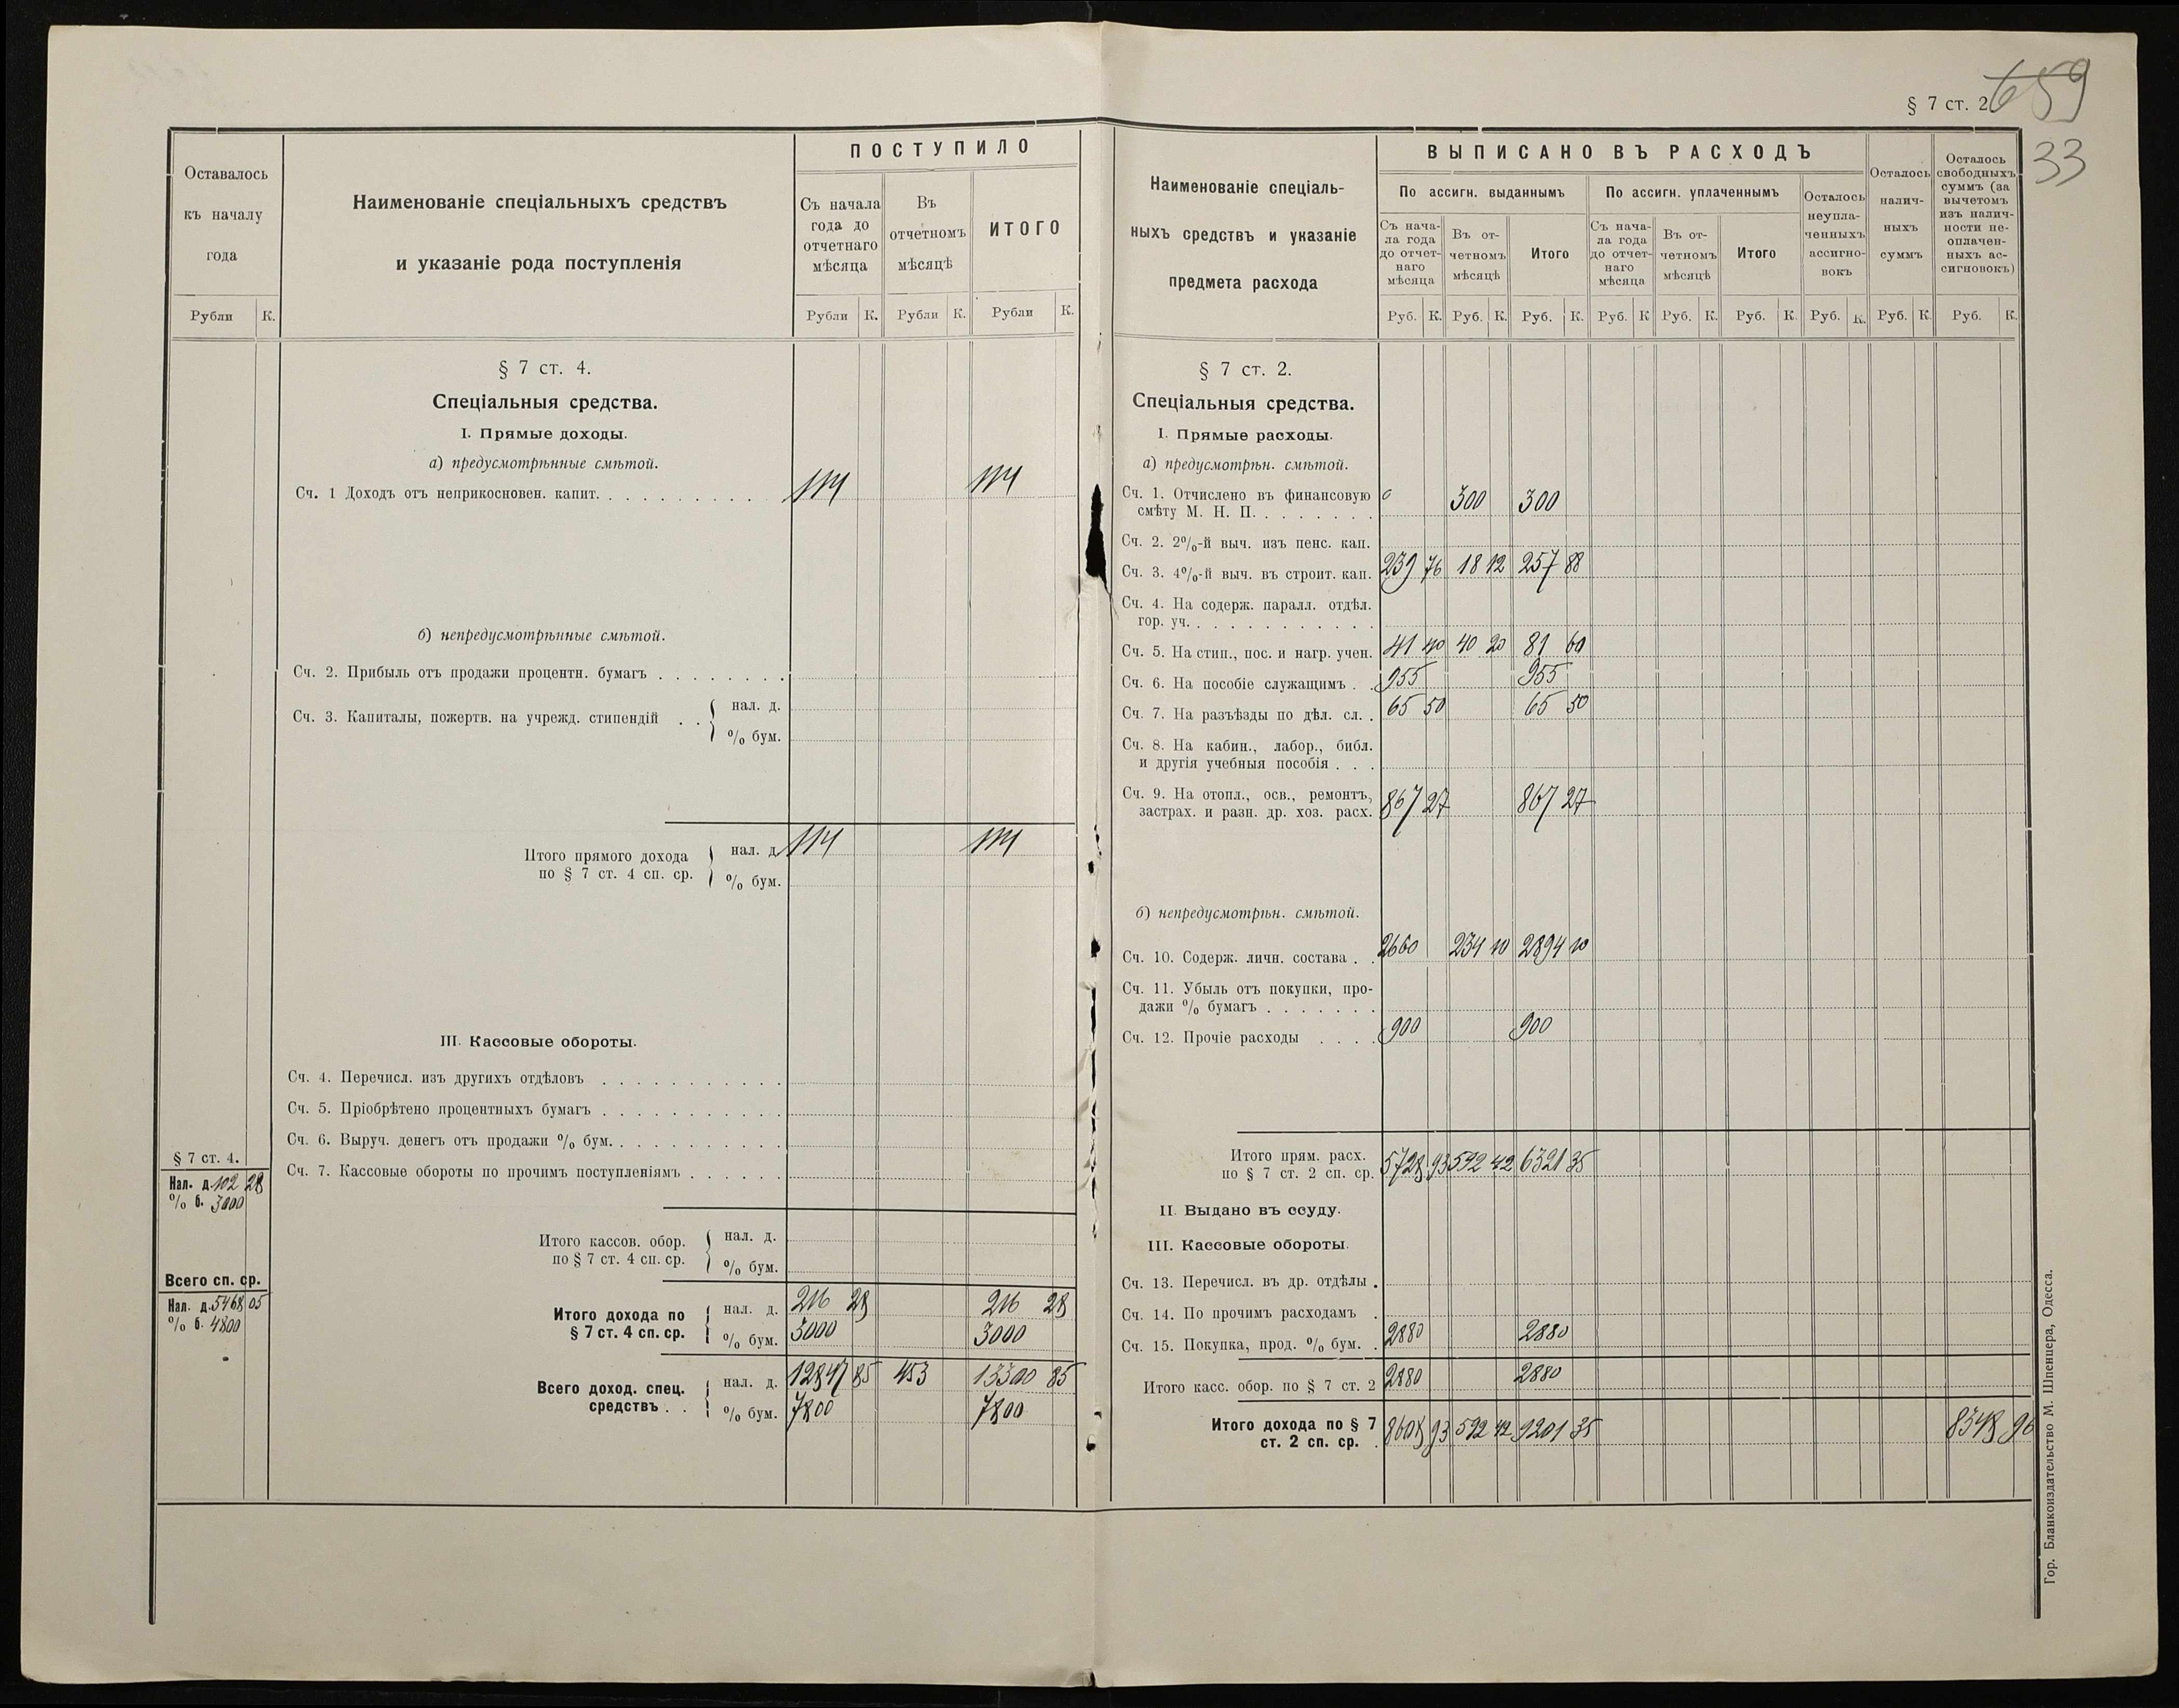 § 7 ст. 2
659
33
Оставалось
къ началу
года
Рубли К.
Наименованіе спеціальныхъ средствъ
и указаніе рода поступленія
ПОСТУПИЛО
Съ начала года до отчетнаго мѣсяца
Въ отчетномъ мѣсяцѣ
ИТОГО
Рубли К. Рубли К. Рубли К.
§ 7 ст. 4.
Спеціальныя средства.
I. Прямые доходы.
а) предусмотрѣнные смѣтой.
Сч. 1 Доходъ отъ неприкосновен. капит. 114 114
б) непредусмотрѣнные смѣтой.
Сч. 2. Прибыль отъ продажи процентн. бумагъ
Сч. 3. Капиталы, пожертв. на учрежд. стипендій
нал. д.
% бум.
Итого прямого дохода
по § 7 ст. 4 сп. ср.
нал. д. 114 114
% бум.
III. Кассовые обороты.
Сч. 4. Перечисл. изъ другихъ отдѣловъ
Сч. 5. Пріобрѣтено процентныхъ бумагъ
Сч. 6. Выруч. денегъ отъ продажи % бум.
Сч. 7. Кассовые обороты по прочимъ поступленіямъ
§ 7 ст. 4.
Нал. д. 102 28
% б. 3000
Итого кассов. обор.
по § 7 ст. 4 сп. ср.
нал. д.
% бум.
Всего сп. ср.
Нал. д. 5468 05
% б. 4800
Итого дохода по
§ 7 ст. 4 сп. ср.
нал. д. 216 28 216 28
% бум. 3000 3000
Всего доход. спец.
средствъ . .
нал. д. 12847 85 453 13300 85
% бум. 7800 7800
Наименованіе спеціаль-
ныхъ средствъ и указаніе
предмета расхода
ВЫПИСАНО ВЪ РАСХОДЪ
По ассигн. выданнымъ
По ассигн. уплаченнымъ
Съ нача-
ла года
до отчет-
наго
мѣсяца
Въ от-
четномъ
мѣсяцѣ
Итого
Съ нача-
ла года
до отчет-
наго
мѣсяца
Въ от-
четномъ
мѣсяцѣ
Итого
Осталось
неупла-
ченныхъ
ассигно-
вокъ
Осталось
налич-
ныхъ
суммъ
Осталось
свободныхъ
суммъ (за
вычетомъ
изъ налич-
ности не-
оплачен-
ныхъ ас-
сигновокъ)
Руб. К. Руб. К. Руб. К. Руб. К Руб. К. Руб. К. Руб. К. Руб. К. Руб. К.
§ 7 ст. 2.
Спеціальныя средства.
I. Прямые расходы.
а) предусмотрѣн. смѣтой.
Сч. 1. Отчислено въ финансовую
смѣту М. Н. П. 0 300 300
Сч. 2. 2%-й выч. изъ пенс. кап.
Сч. 3. 4%-й выч. въ строит. кап. 239 76 18 12 257 88
Сч. 4. На содерж. паралл. отдѣл.
гор. уч.
Сч. 5. На стип., пос. и нагр. учен. 41 40 40 20 81 60
Сч. 6. На пособіе служащимъ . . 955 955
Сч. 7. На разъѣзды по дѣл. сл. . 65 50 65 50
Сч. 8. На кабин., лабор., библ.
и другія учебныя пособія . . .
Сч. 9. На отопл., осв., ремонтъ,
застрах. и разн. др. хоз. расх. 867 27 867 27
б) непредусмотрѣн. смѣтой.
Сч. 10. Содерж. личн. состава . . 2660 234 10 2894 10
Сч. 11. Убыль отъ покупки, про-
дажи % бумагъ
Сч. 12. Прочіе расходы . . . . 900 900
Итого прям. расх.
по § 7 ст. 2 сп. ср. 5728 93 592 42 6321 35
II. Выдано въ ссуду.
III. Кассовые обороты.
Сч. 13. Перечисл. въ др. отдѣлы .
Сч. 14. По прочимъ расходамъ .
Сч. 15. Покупка, прод. % бум. . 2880 2880
Итого касс. обор. по § 7 ст. 2 2880 2880
Итого дохода по § 7
ст. 2 сп. ср. . 8608 93 592 42 9201 35 8348 96
Гор. Бланкоиздательство М. Шпенцера, Одесса.